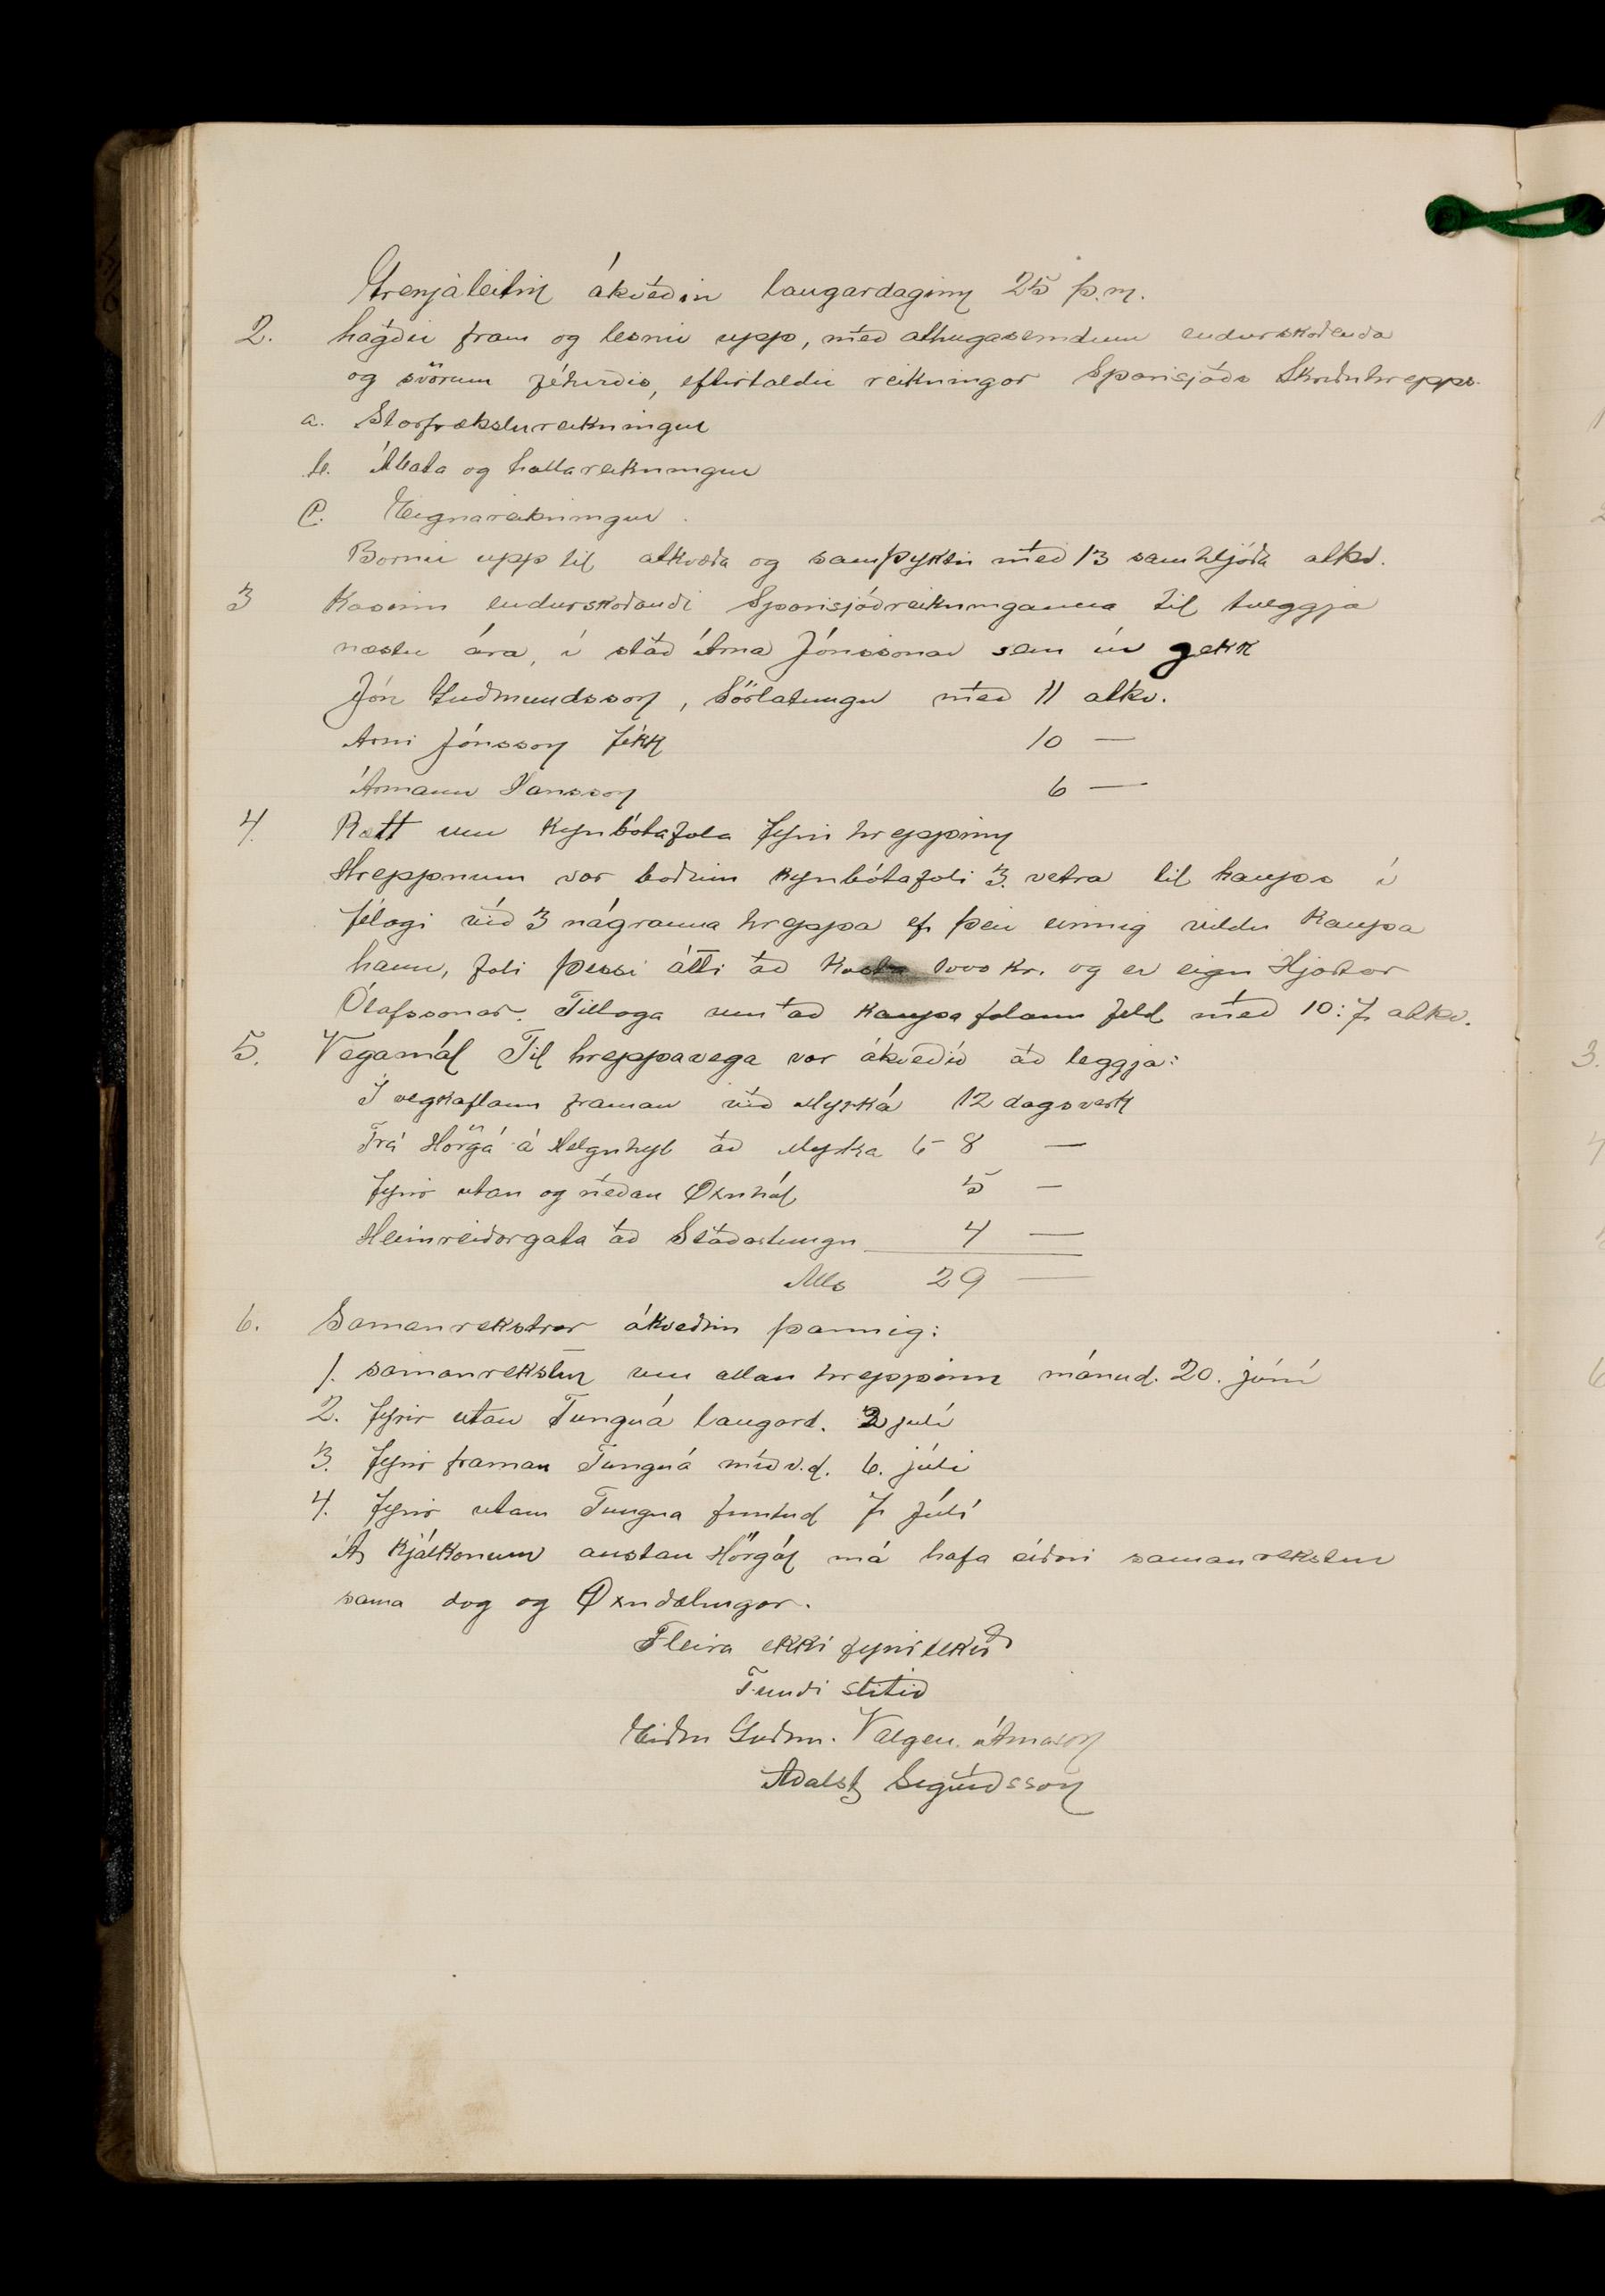 Grenjaleitin ákveðin laugardaginn 25 þ.m.
2. Lagðir fram og lesnir upp, með athugasemdum endurskoðenda
og svörum féhirðis, eftirtaldir reikningar Sparisjóðs Skriðuhrepps.
a. Starfrækslureikningur
b. Ábata og hallareikningur
C. Eignareikningur.
Bornir upp til atkvæða og samþyktir með 13 samhljóða atkv.
3 Kosinn endurskoðandi Sparisjóðreikninganna til tveggja
næstu ára, í stað Árna Jónssonar sem úr gekk
Jón Guðmundsson, Sörlatungu með 11 atkv.
Arni Jónsson fékk 10 —
Ármann Hansson 6 —
4. Rætt um kynbótafola fyrir hreppinn
Hreppnum var boðinn kynbótafoli 3. vetra til kaups í
félagi við 3 nágranna hreppa ef þeir einnig vildu kaupa
hann, foli þessi átti að kosta 1000 kr. og er eign Hjartar
Ólafssonar. Tillaga um að kaupa folann feld með 10:7 atkv.
5. Vegamál Til hreppavega var ákveðið að leggja:
Í vegkaflann framan við Myrká 12 dagsverk
Frá Hörgá á Helguhyl að Myrka 6-8 —
Fyrir utan og neðan Öxnhól 5 —
Heimreiðargata að Staðartungu 4 —
Alls 29 —
6. Samanrekstrar ákveðnir þannig:
1. samanrekstur um allan hreppinn mánud. 20. júní
2. fyrir utan Tunguá laugard. 2 júlí
3. fyrir framan Tunguá miðv.d. 6. júli
4. fyrir utan Tungua fimtud 7 Júlí
Á Kjálkanum austan Hörgár má hafa síðari samanrekstur
sama dag og Öxndælingar.
Fleira ekki fyrirtekið
Fundi slitið
Eiður Guðm. Valgeir Árnason
Aðalst Sigurðsson